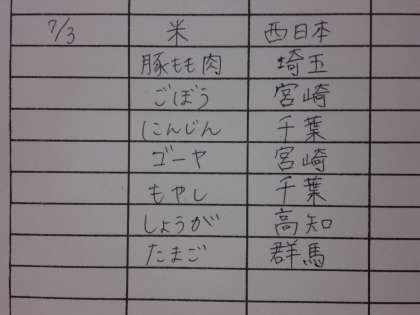 7/3 米 西日本
豚もも肉 埼玉
ごぼう 宮崎
にんじん 千葉
ゴーヤ 宮崎
もやし 千葉
しょうが 高知
たまご 群馬